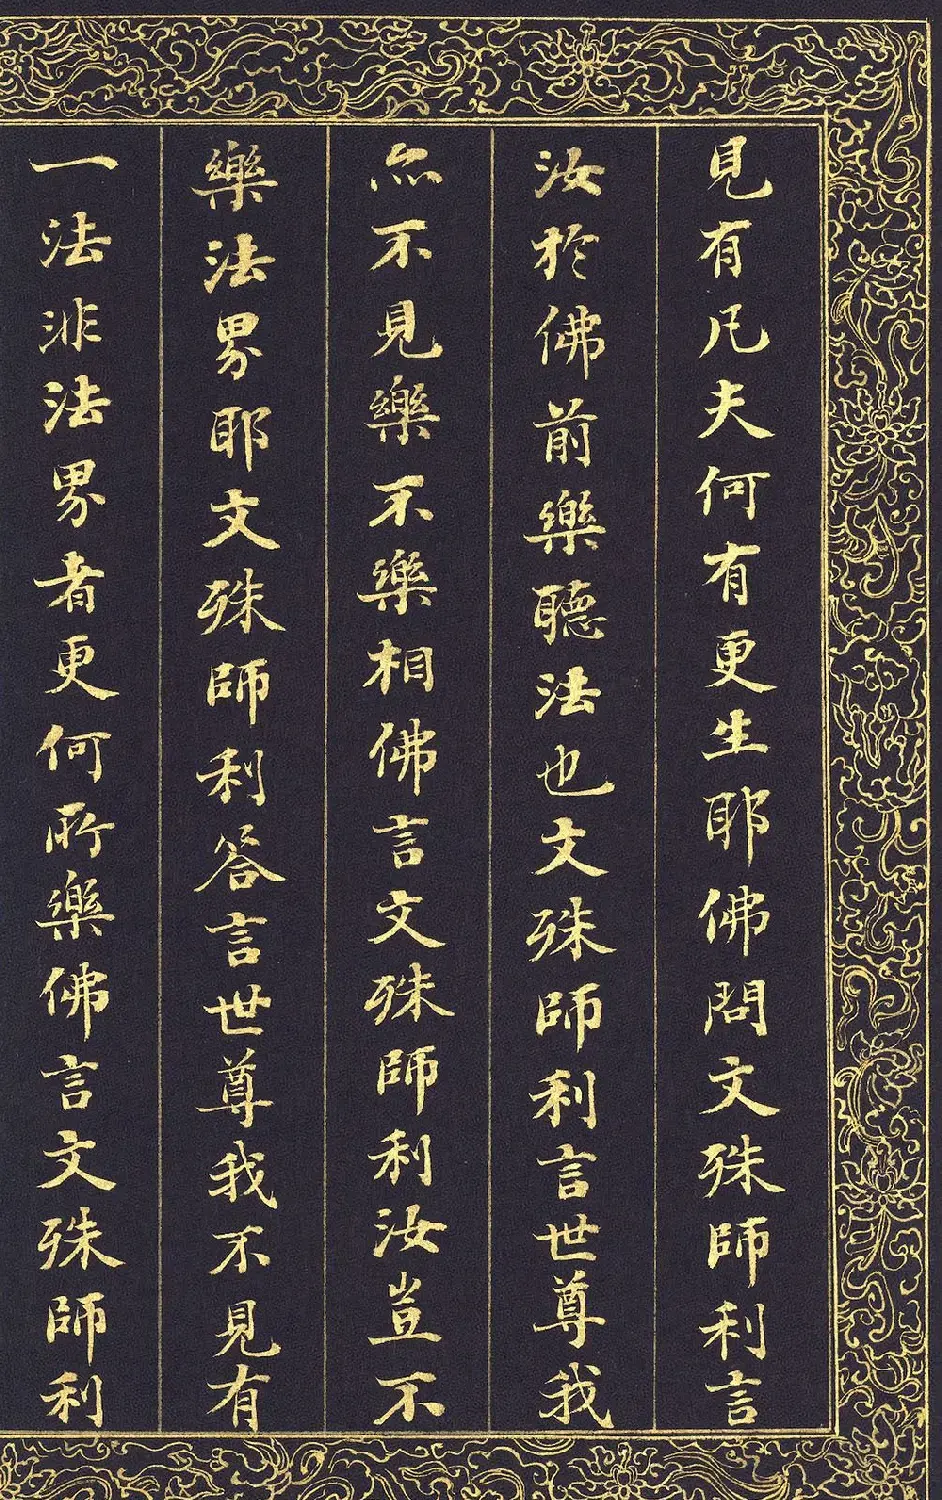 見有凡夫何有更生耶佛問文殊師利言
汝於佛前樂聽法也文殊師利言世尊我
亦不見樂不樂相佛言文殊師利汝豈不
樂法界耶文殊師利答言世尊我不見有
一法非法界者更何所樂佛言文殊師利